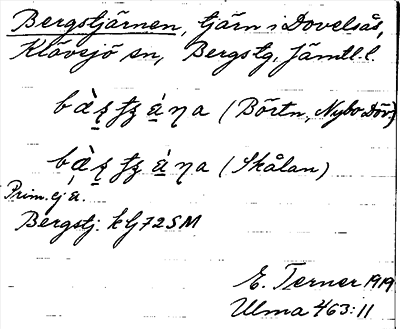 Bergstjärnen, tjärn i Dovelsås,
Klövsjö sn, Bergs tg, Jämtl. l.
(Börtn, Nybo Döv)
(Skålan)
Prim. ej
Bergstj: kg 72 SM
E. Terner 1919
Ulma 463:11